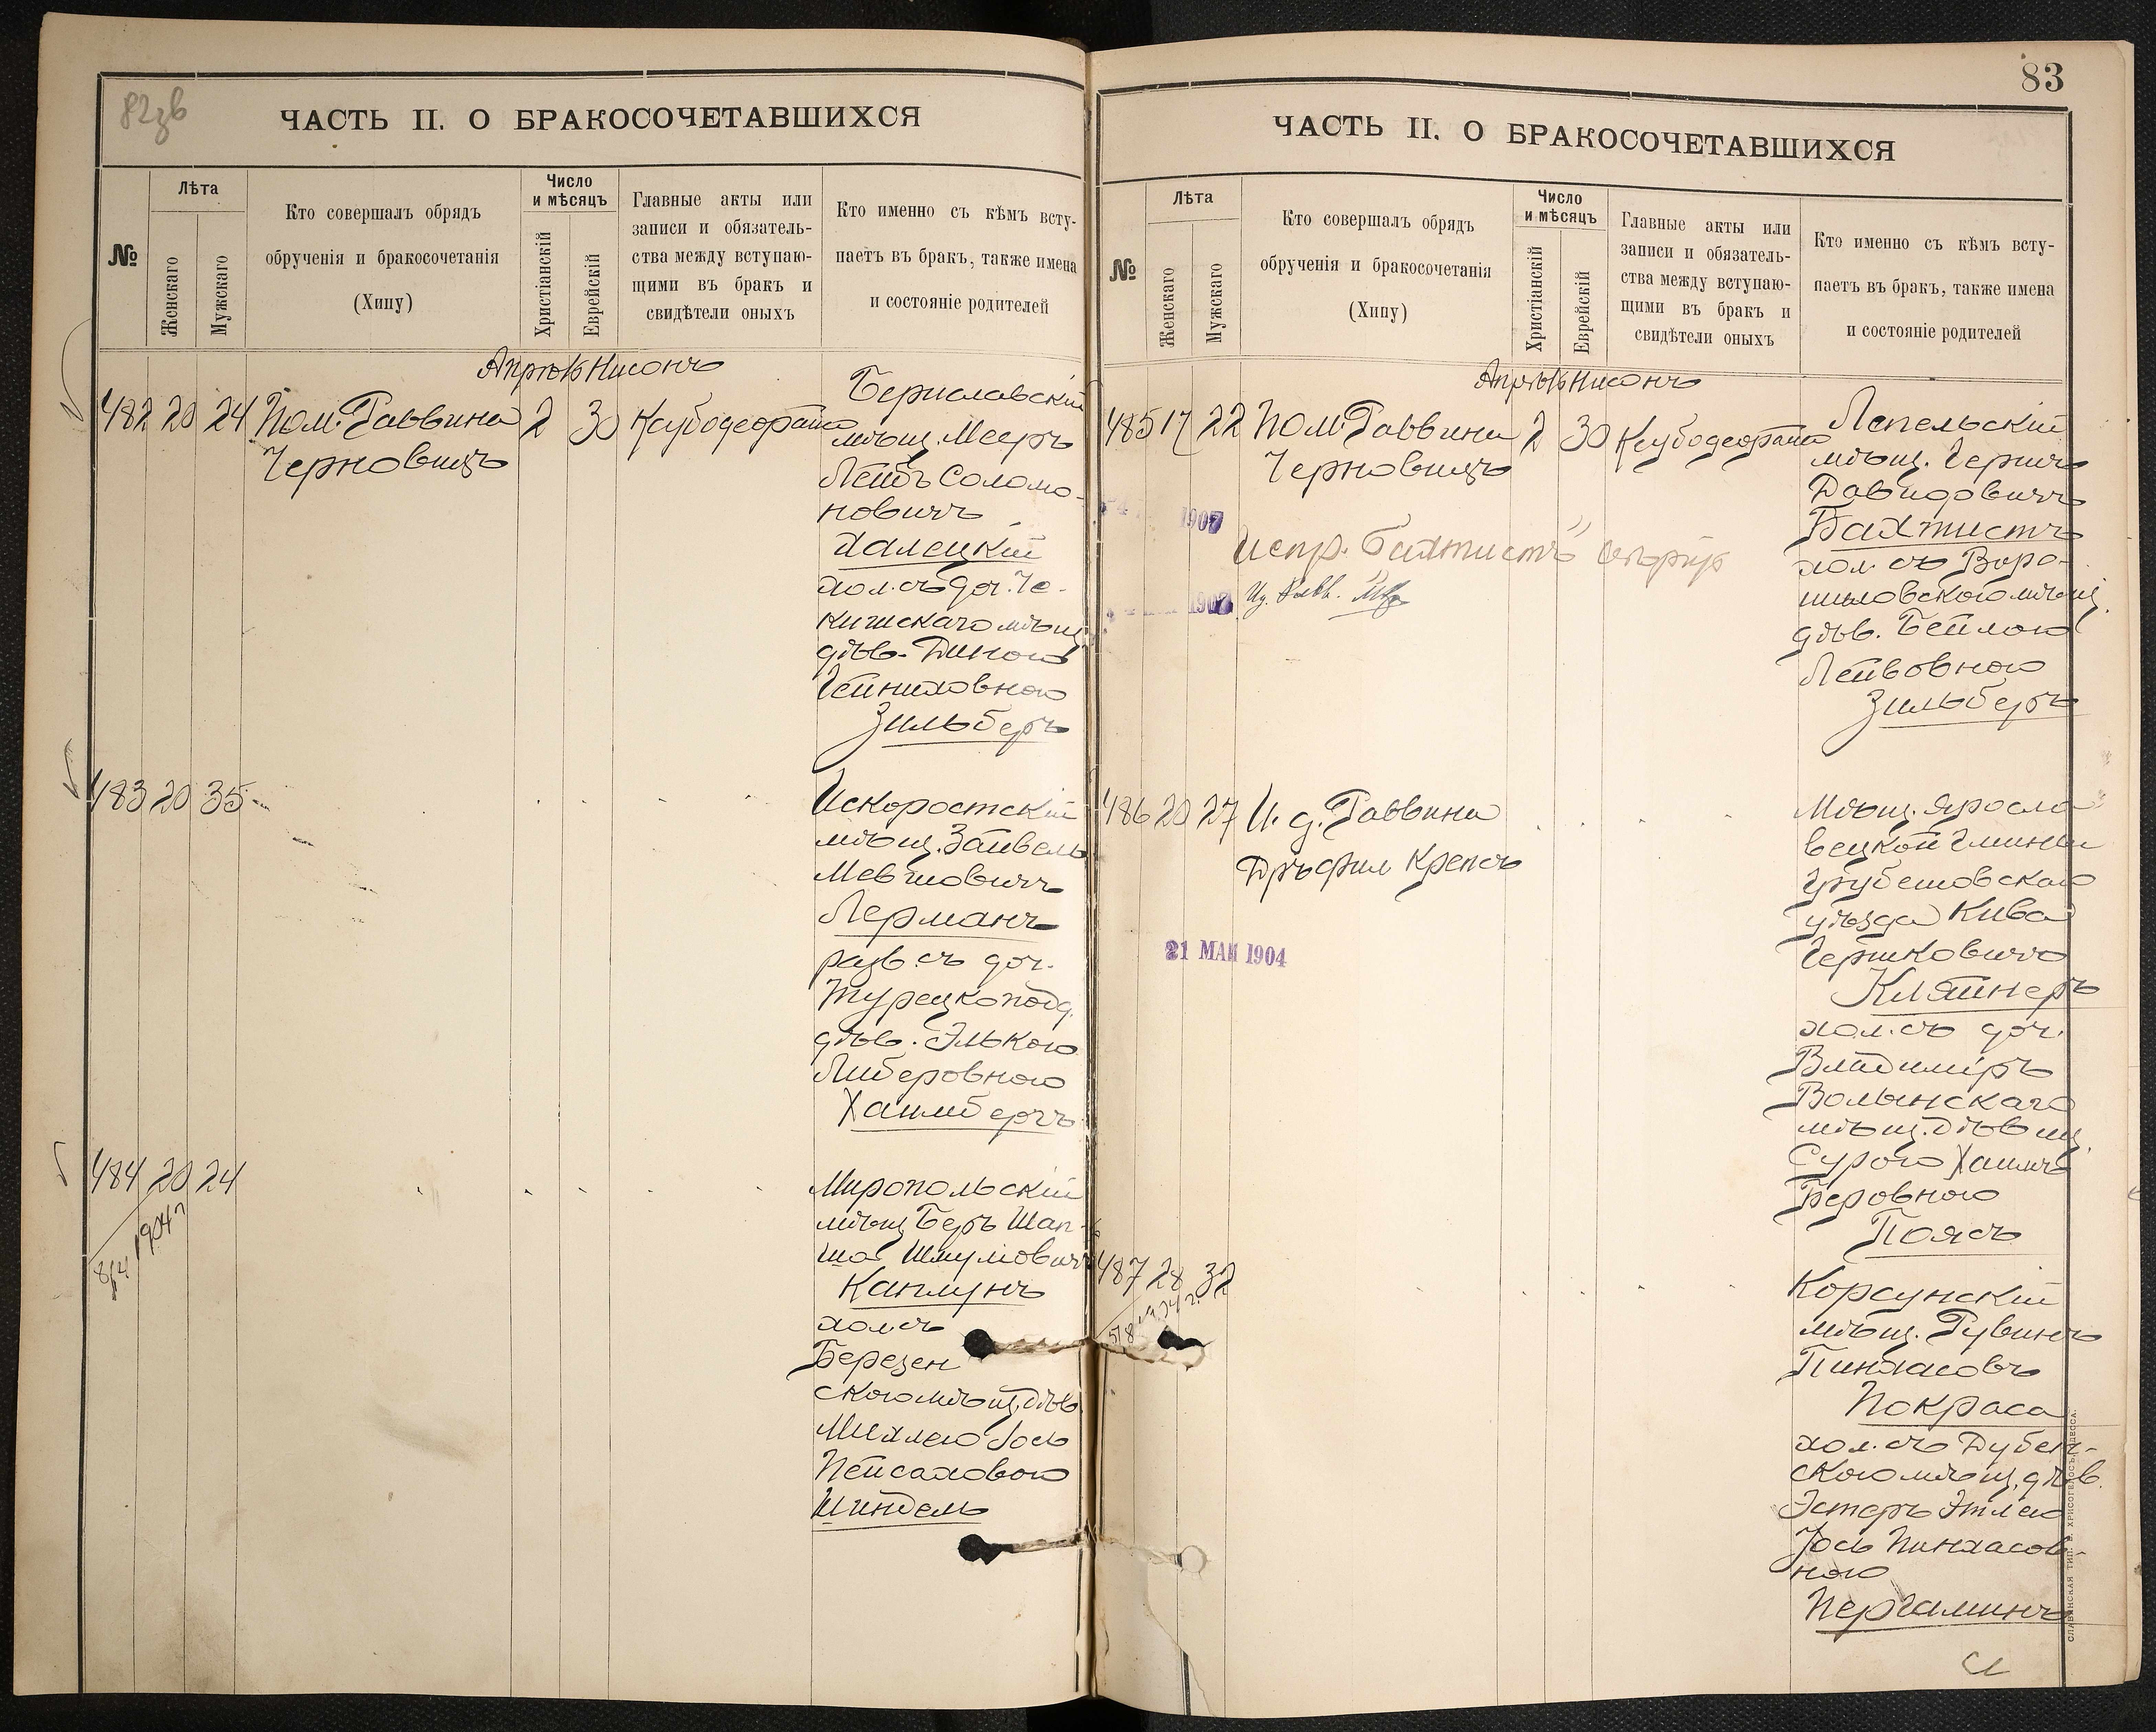 82зв
ЧАСТЬ II. О БРАКОСОЧЕТАВШИХСЯ
№
Лѣта
Женскаго
Мужскаго
Кто совершалъ обрядъ
обрученія и бракосочетанія
(Хипу)
Число
и мѣсяцъ
Христіанскій
Еврейскій
Главные акты или
записи и обязатель-
ства между вступаю-
щими въ бракъ и
свидѣтели оныхъ
Кто именно съ кѣмъ всту-
паетъ въ бракъ, также имена
и состояніе родителей
Апрѣль Нисонъ
482 20 24 Пом. Раввина 2 30
Черновицъ
Бериславскій
мѣщ. Мееръ
Лейбъ Соломо-
новичъ
Халецкій
хол. съ доч. Че-
кишскаго мѣщ.
дѣв. Диною
Гейниховною
Зильберъ
483 20 35
Искоростскій
мѣщ. Зайвель
Мевшовичъ
Лерманъ
разв. съ доч.
Турецкоподд.
дѣв. Элькою
Либеровною
Хаимбергъ
484 20 24
1904 г
Миропольскій
мѣщ Беръ Шап-
ша Шмулевичъ
Каплунъ
хол. съ
Березен
скою мѣщ. дѣв.
Михлею Іось
Пейсаховою
Шиндель
83
ЧАСТЬ II. О БРАКОСОЧЕТАВШИХСЯ
№
Лѣта
Женскаго
Мужскаго
Кто совершалъ обрядъ
обрученія и бракосочетанія
(Хипу)
Число
и мѣсяцъ
Христіанскій
Еврейскій
Главные акты или
записи и обязатель-
ства между вступаю-
щими въ бракъ и
свидѣтели оныхъ
Кто именно съ кѣмъ всту-
паетъ въ бракъ, также имена
и состояніе родителей
Апрѣль Нисонъ
485 17 22 Пом. Раввина 2 30
Черновицъ
1907
Испр. "Бахтистъ" вѣрно
1907
Лепельскій
мѣщ. Герцъ
Давидовичъ
Бахтистъ
хол. съ Воро-
шиловскою мѣщ.
дѣв. Бейлою
Лейвовною
Зильберъ
486 20 27 И. д. Раввина
Дръ фил Крепсъ
21 МАЯ 1904
Мѣщ. Яросла
вецкой гмины
Грубешовскаго
уѣзда Кива
Гершковичъ
Кляйнеръ
хол. съ доч.
Владиміръ
Волынскаго
мѣщ. дѣвиц.
Сурою Хаимъ
Беровною
Поясъ
487 28 32
Корсунскій
мѣщ. Рувинъ
Пинхасовъ
Покраса
хол. съ Дубен-
скою мѣщ. дѣв.
Эстеръ Этлею
Іось Пинхасов-
ною
Пергаминъ